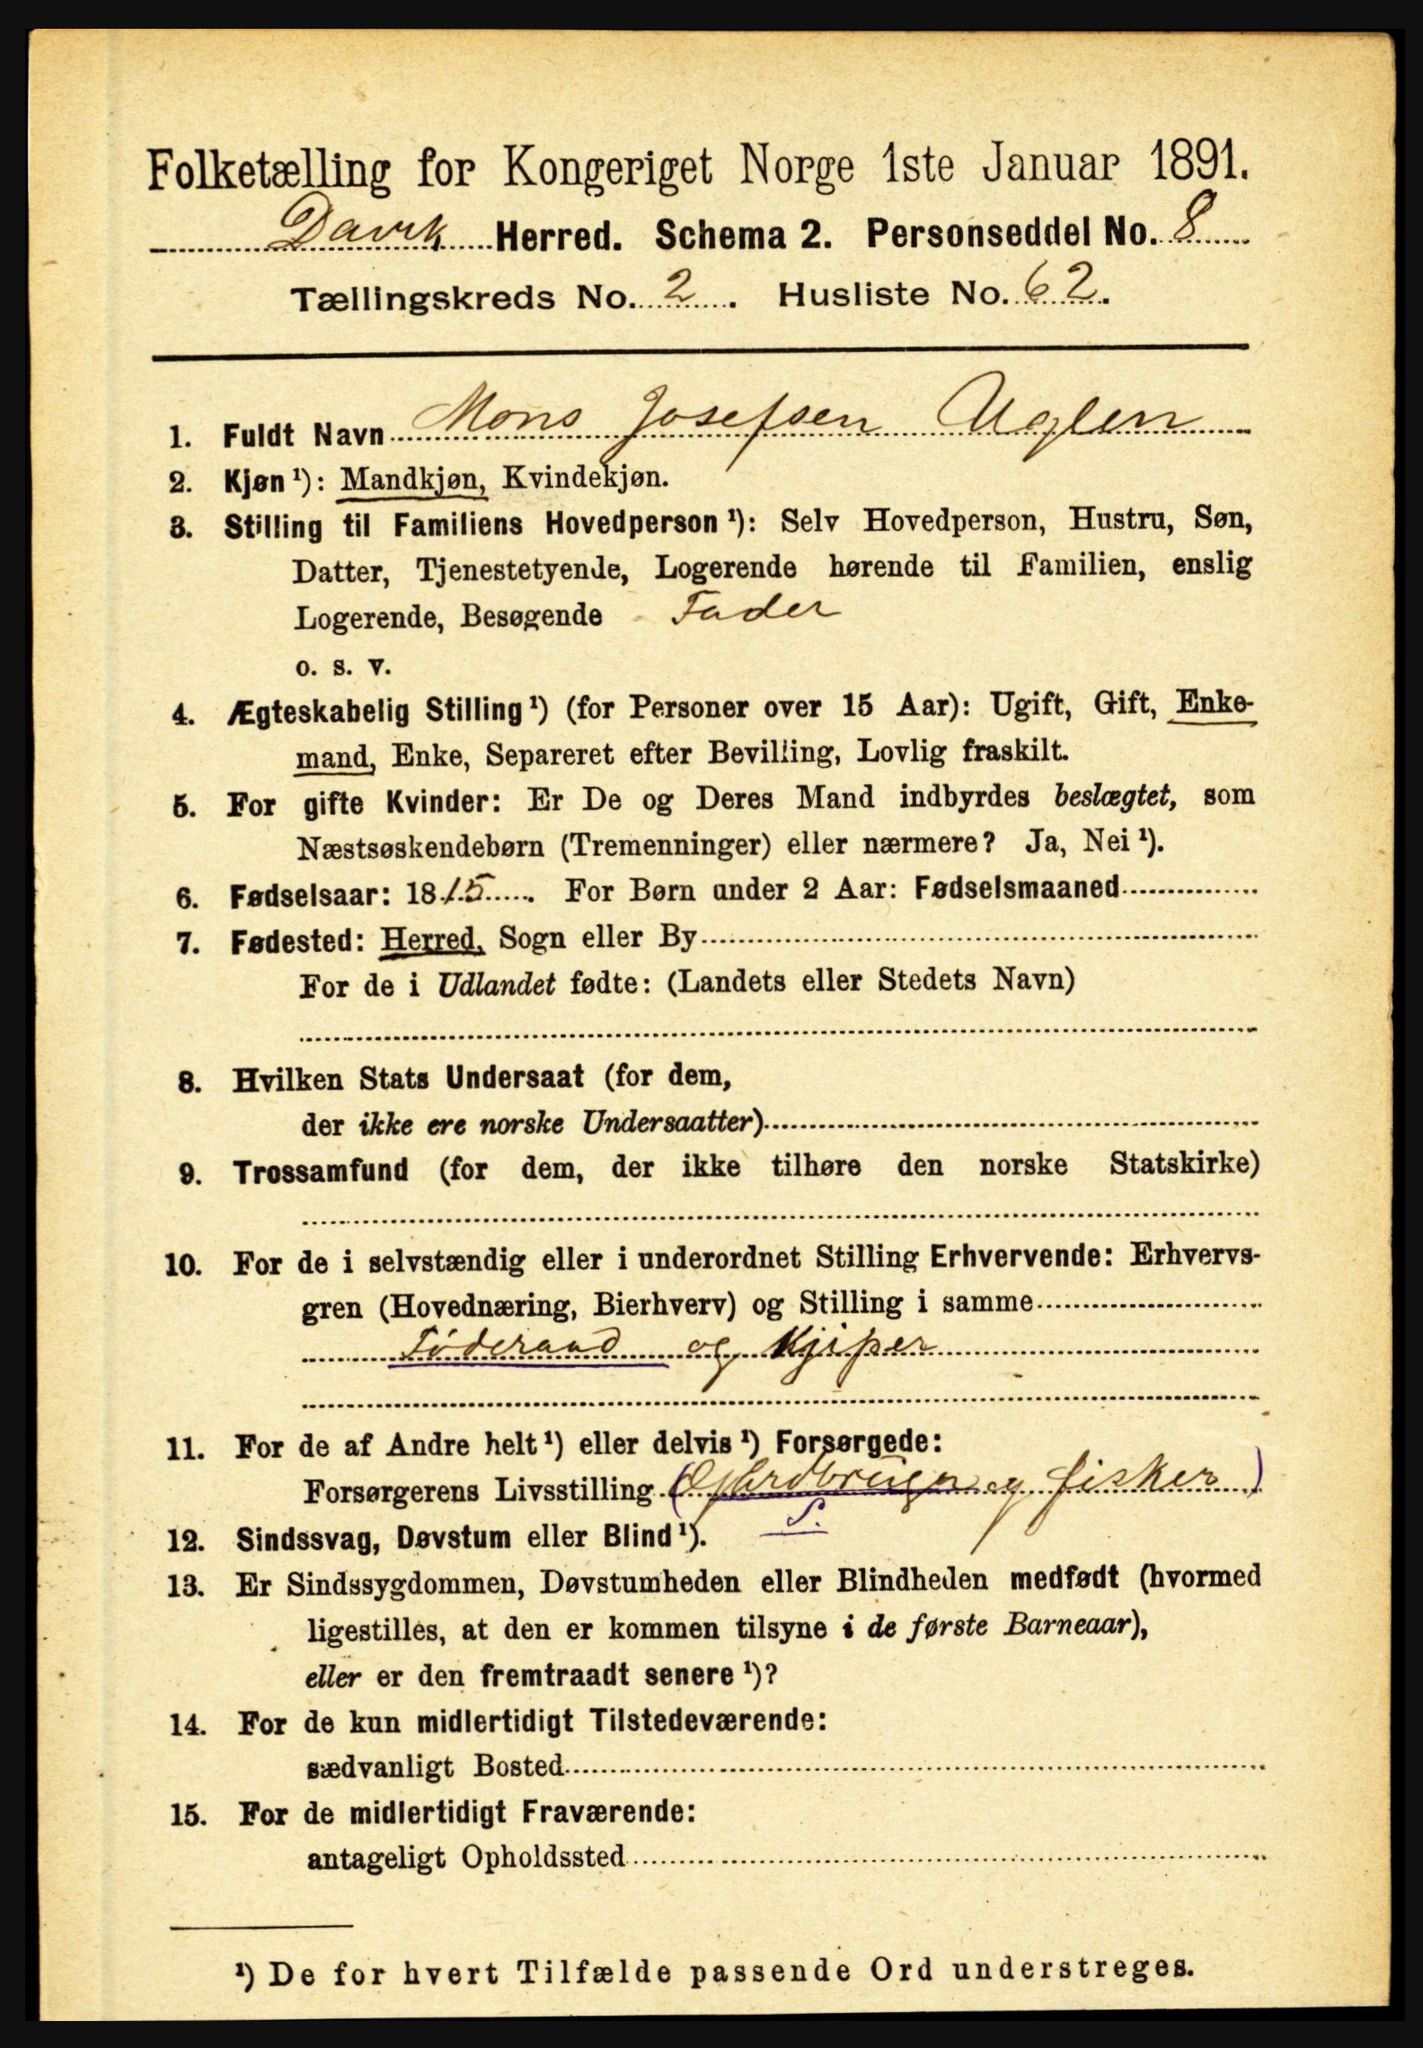 Folketælling for Kongeriget Norge 1ste Januar 1891.
Davik Herred. Schema 2. Personseddel No. 8
Tællingskreds No. 2. Husliste No. 62.
1. Fuldt Navn Mons Josefsen Uglen
2. Kjøn ¹): Mandkjøn, Kvindekjøn.
3. Stilling til Familiens Hovedperson ¹): Selv Hovedperson, Hustru, Søn,
Datter, Tjenestetyende, Logerende hørende til Familien, enslig
Logerende, Besøgende Fader
o. s. v.
4. Ægteskabelig Stilling ¹) (for Personer over 15 Aar): Ugift, Gift, Enke-
mand, Enke, Separeret efter Bevilling, Lovlig fraskilt.
5. For gifte Kvinder: Er De og Deres Mand indbyrdes beslægtet, som
Næstsøskendebørn (Tremenninger) eller nærmere? Ja, Nei ¹).
6. Fødselsaar: 1815. For Børn under 2 Aar: Fødselsmaaned
7. Fødested: Herred, Sogn eller By
For de i Udlandet fødte: (Landets eller Stedets Navn)
8. Hvilken Stats Undersaat (for dem,
der ikke ere norske Undersaatter)
9. Trossamfund (for dem, der ikke tilhøre den norske Statskirke)
10. For de i selvstændig eller i underordnet Stilling Erhvervende: Erhvervs-
gren (Hovednæring, Bierhverv) og Stilling i samme
Føderaad og Kjiper
11. For de af Andre helt ¹) eller delvis ¹) Forsørgede:
Forsørgerens Livsstilling (Gaardbruger og fisker)
S.
12. Sindssvag, Døvstum eller Blind ¹).
13. Er Sindssygdommen, Døvstumheden eller Blindheden medfødt (hvormed
ligestilles, at den er kommen tilsyne i de første Barneaar),
eller er den fremtraadt senere ¹)?
14. For de kun midlertidigt Tilstedeværende:
sædvanligt Bosted
15. For de midlertidigt Fraværende:
antageligt Opholdssted
¹) De for hvert Tilfælde passende Ord understreges.